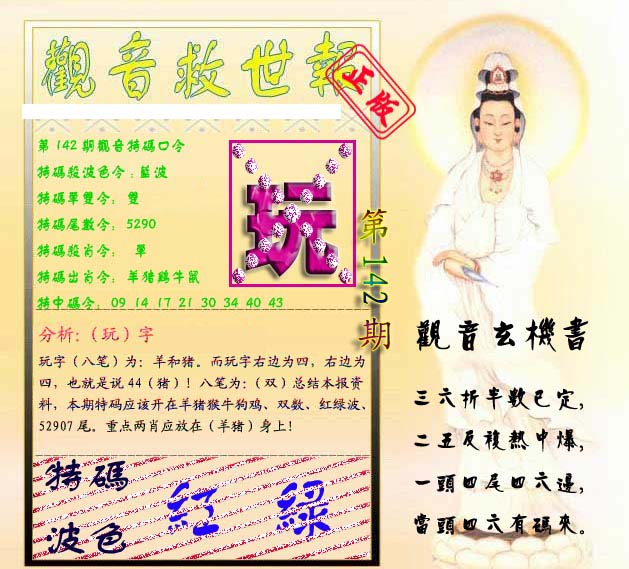 觀音救世報
正版
第142期觀音特碼口令
特碼殺波色令：藍波
特碼單雙令： 雙
特碼尾數令： 5290
特碼殺肖令： 單
特碼出肖令：羊豬鷄牛鼠
特中碼令： 09 14 17 21 30 34 40 43
玩
第142期
分析:（玩）字
玩字（八笔）为：羊和猪。而玩字右边为四，右边为
四，也就是说44（猪）！八笔为：（双）总结本报资
料，本期特码应该开在羊猪猴牛狗鸡、双数、红绿波、
52907尾。重点两肖应放在（羊猪）身上！
特碼
波色
紅 綠
觀音玄機書
三六折半數已定，
二五反複熱中爆，
一頭四尾四六邊，
當頭四六有碼來。